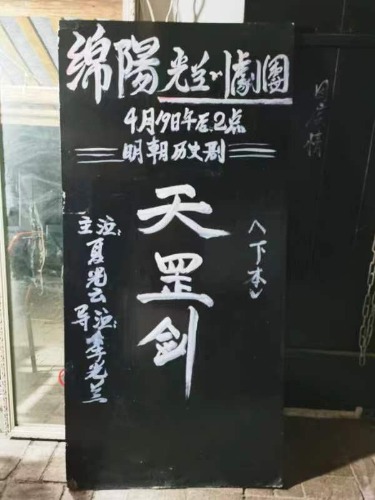 绵陽光兰川劇團
4月19日午后2点
明朝历史剧
天罡剑
〈下本〉
主演:夏光云
导演:李光兰